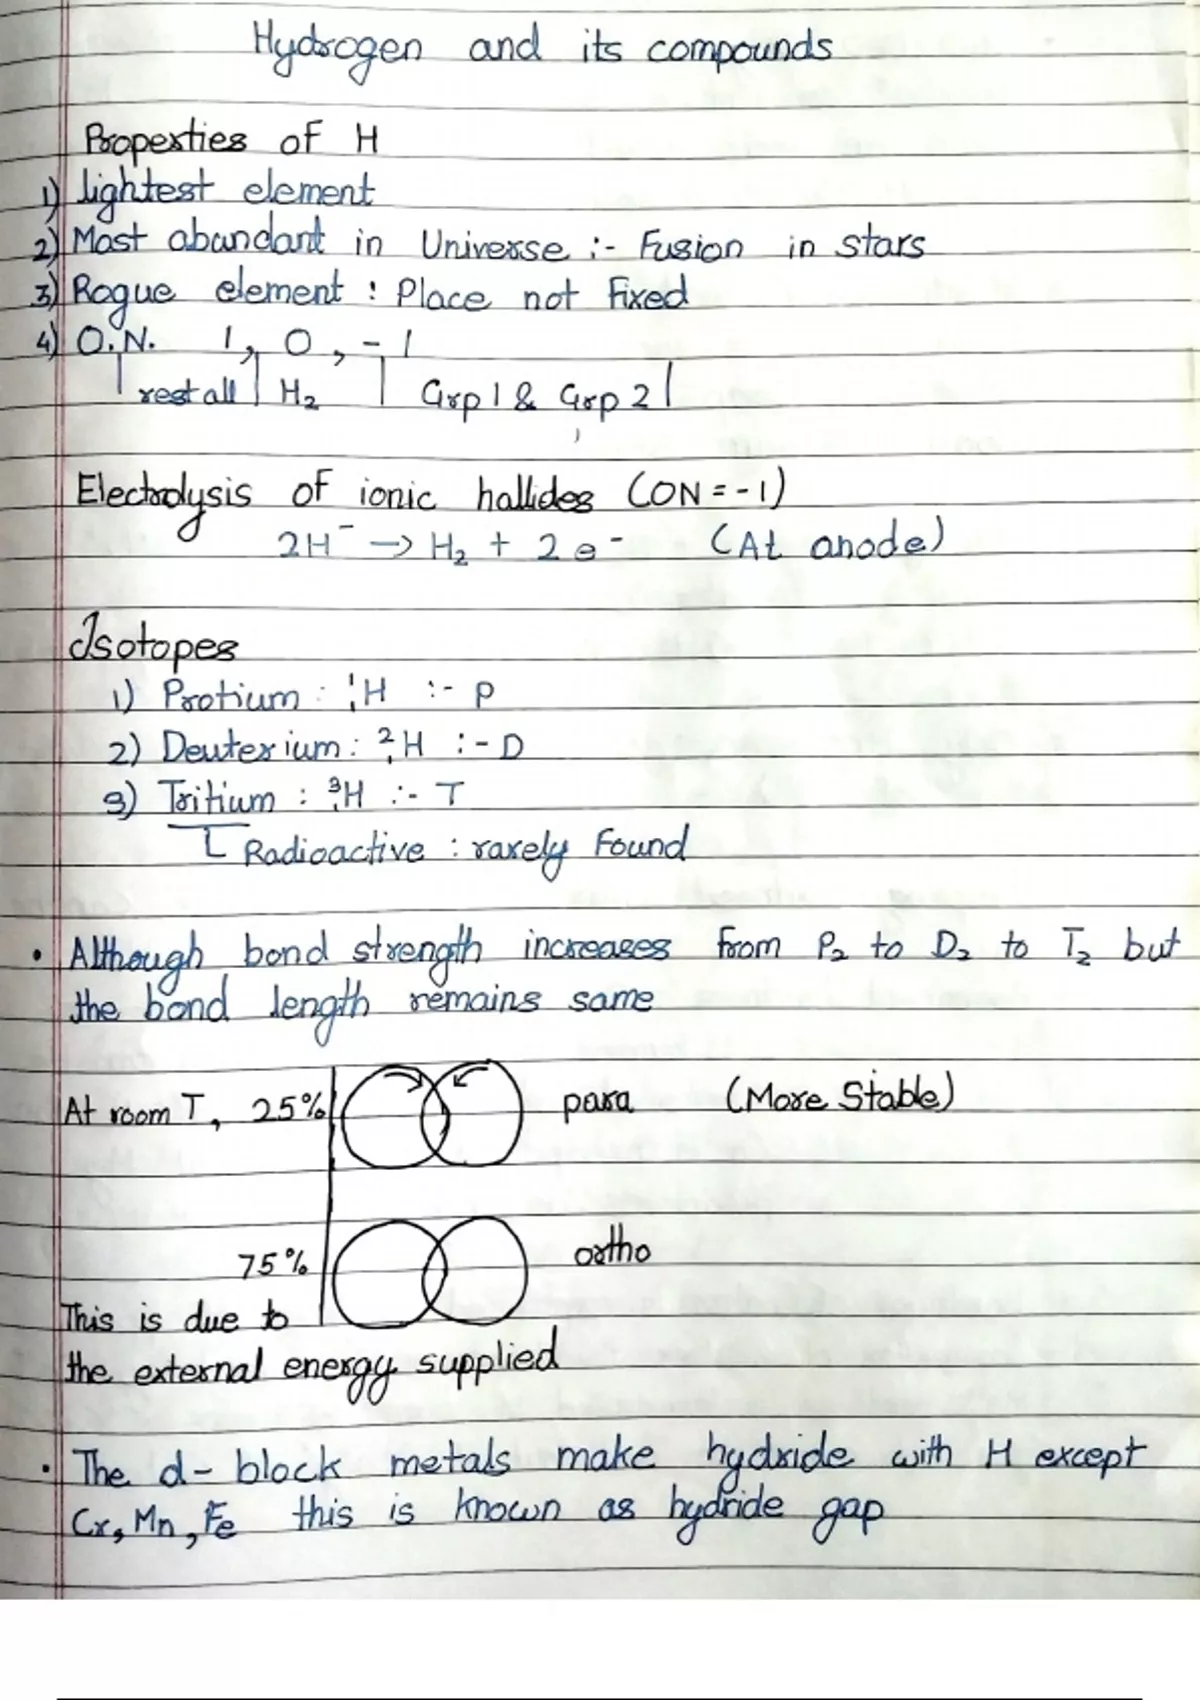 Hydrogen and its compounds
Properties of H
1) Lightest element
2) Most abundant in Universe :- Fusion in stars
3) Rogue element : Place not fixed
4) O.N. 1, 0, -1
rest all H₂ Grp 1 & Grp 2
Electrolysis of ionic hallides (ON = -1)
2H⁻ → H₂ + 2e⁻ (At anode)
Isotopes
1) Protium : ¹₁H :- P
2) Deuterium : ²₁H :- D
3) Tritium : ³₁H :- T
Radioactive : rarely found
• Although bond strength increases from P₂ to D₂ to T₂ but
the bond length remains same
At room T, 25% para (More Stable)
75% ortho
This is due to
the external energy supplied
• The d-block metals make hydride with H except
Cr, Mn, Fe this is known as hydride gap